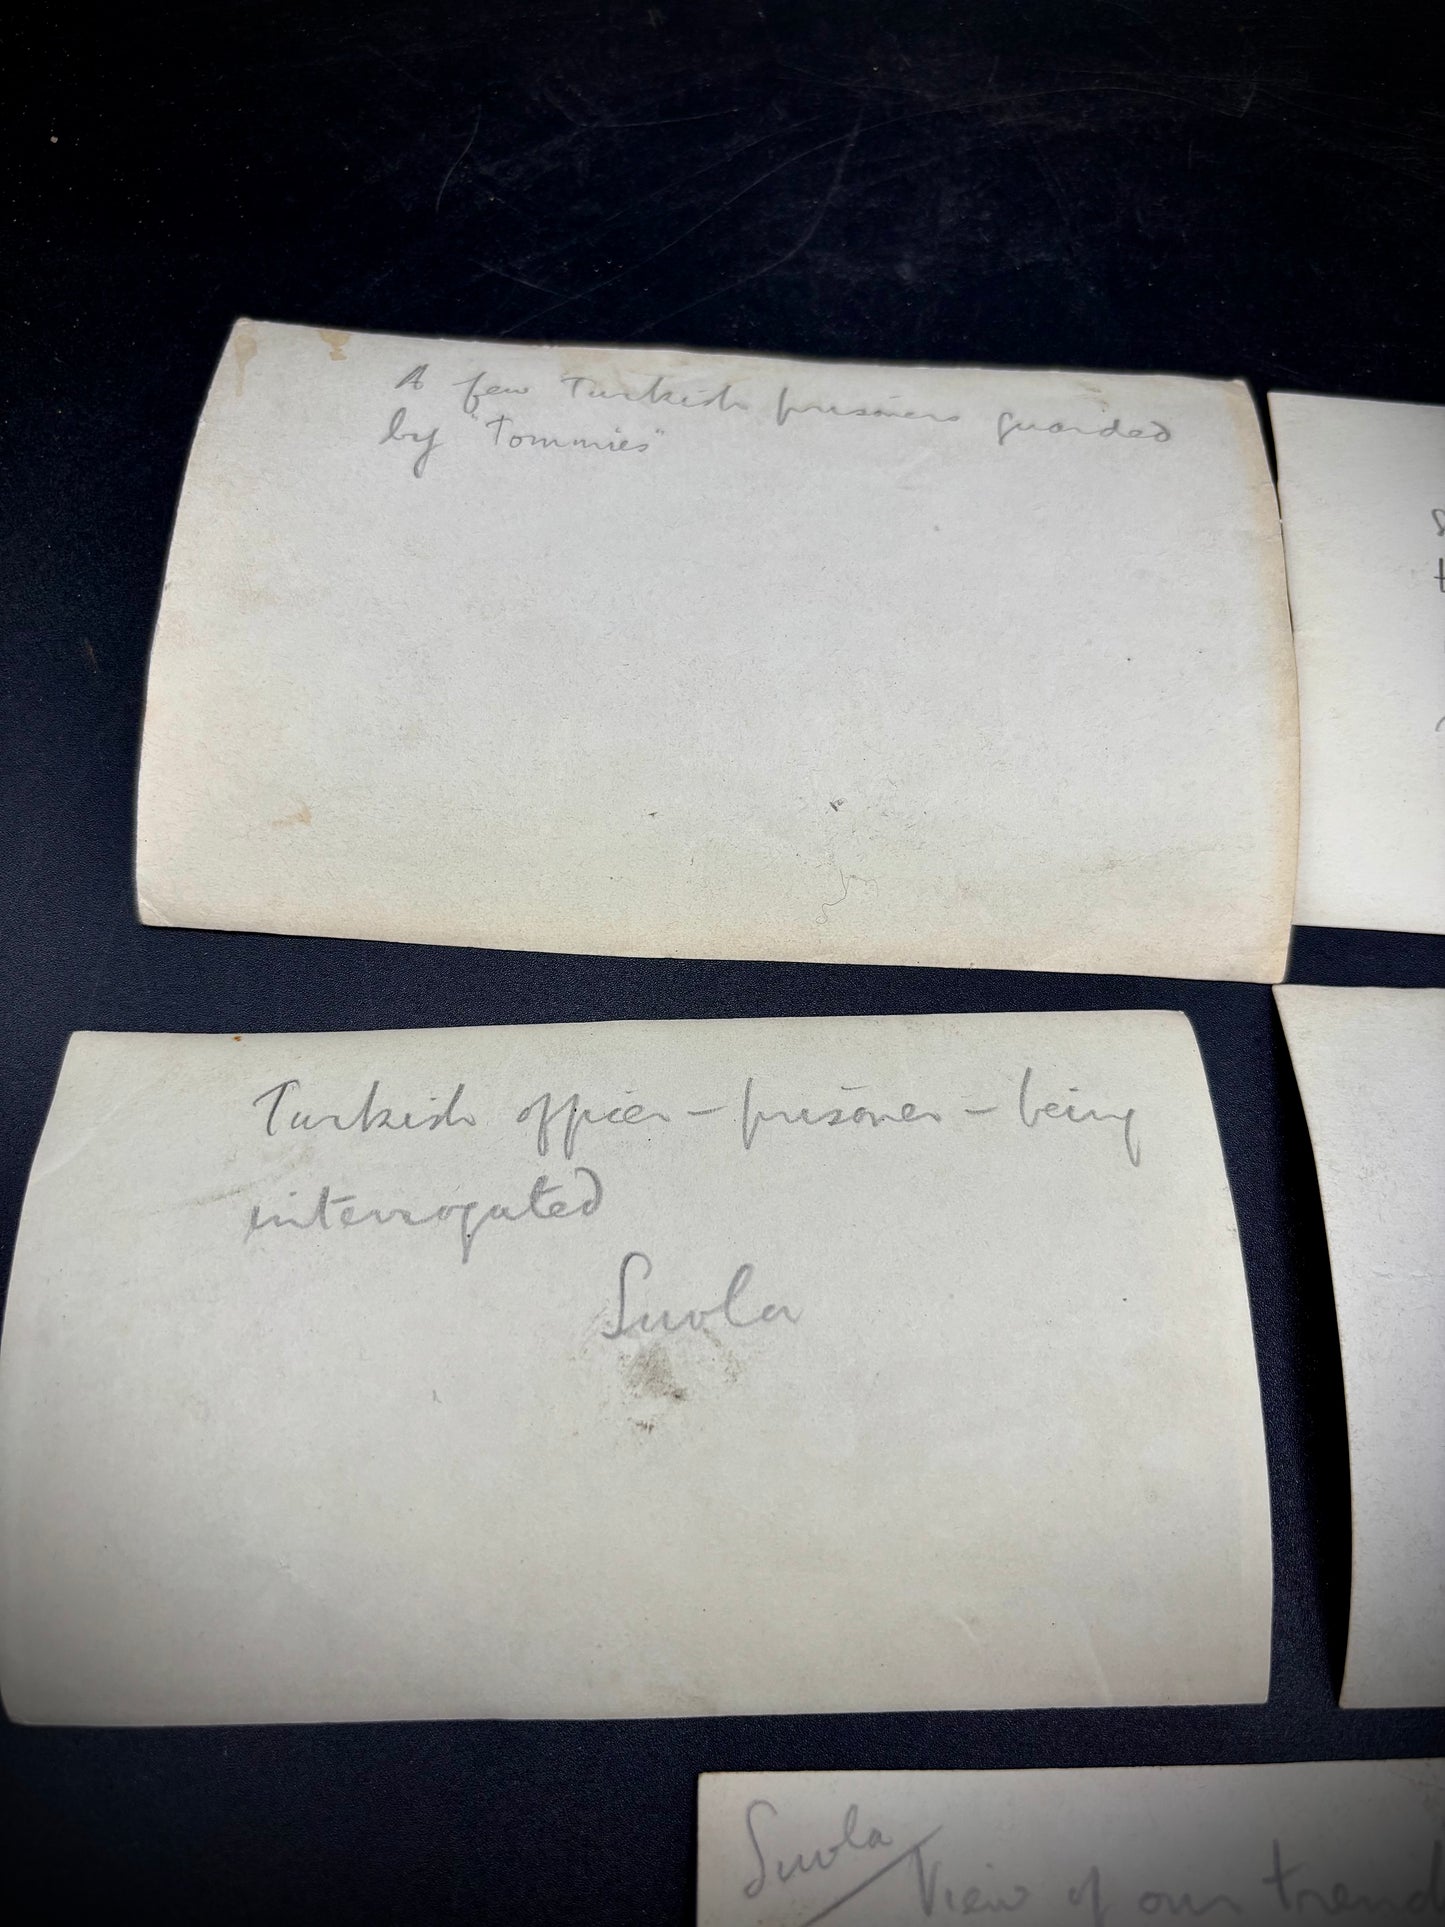 A few Turkish prisoners guarded
by "Tommies"
Turkish officer – prisoner – being
interrogated
Suvla
Suvla / View of our trend